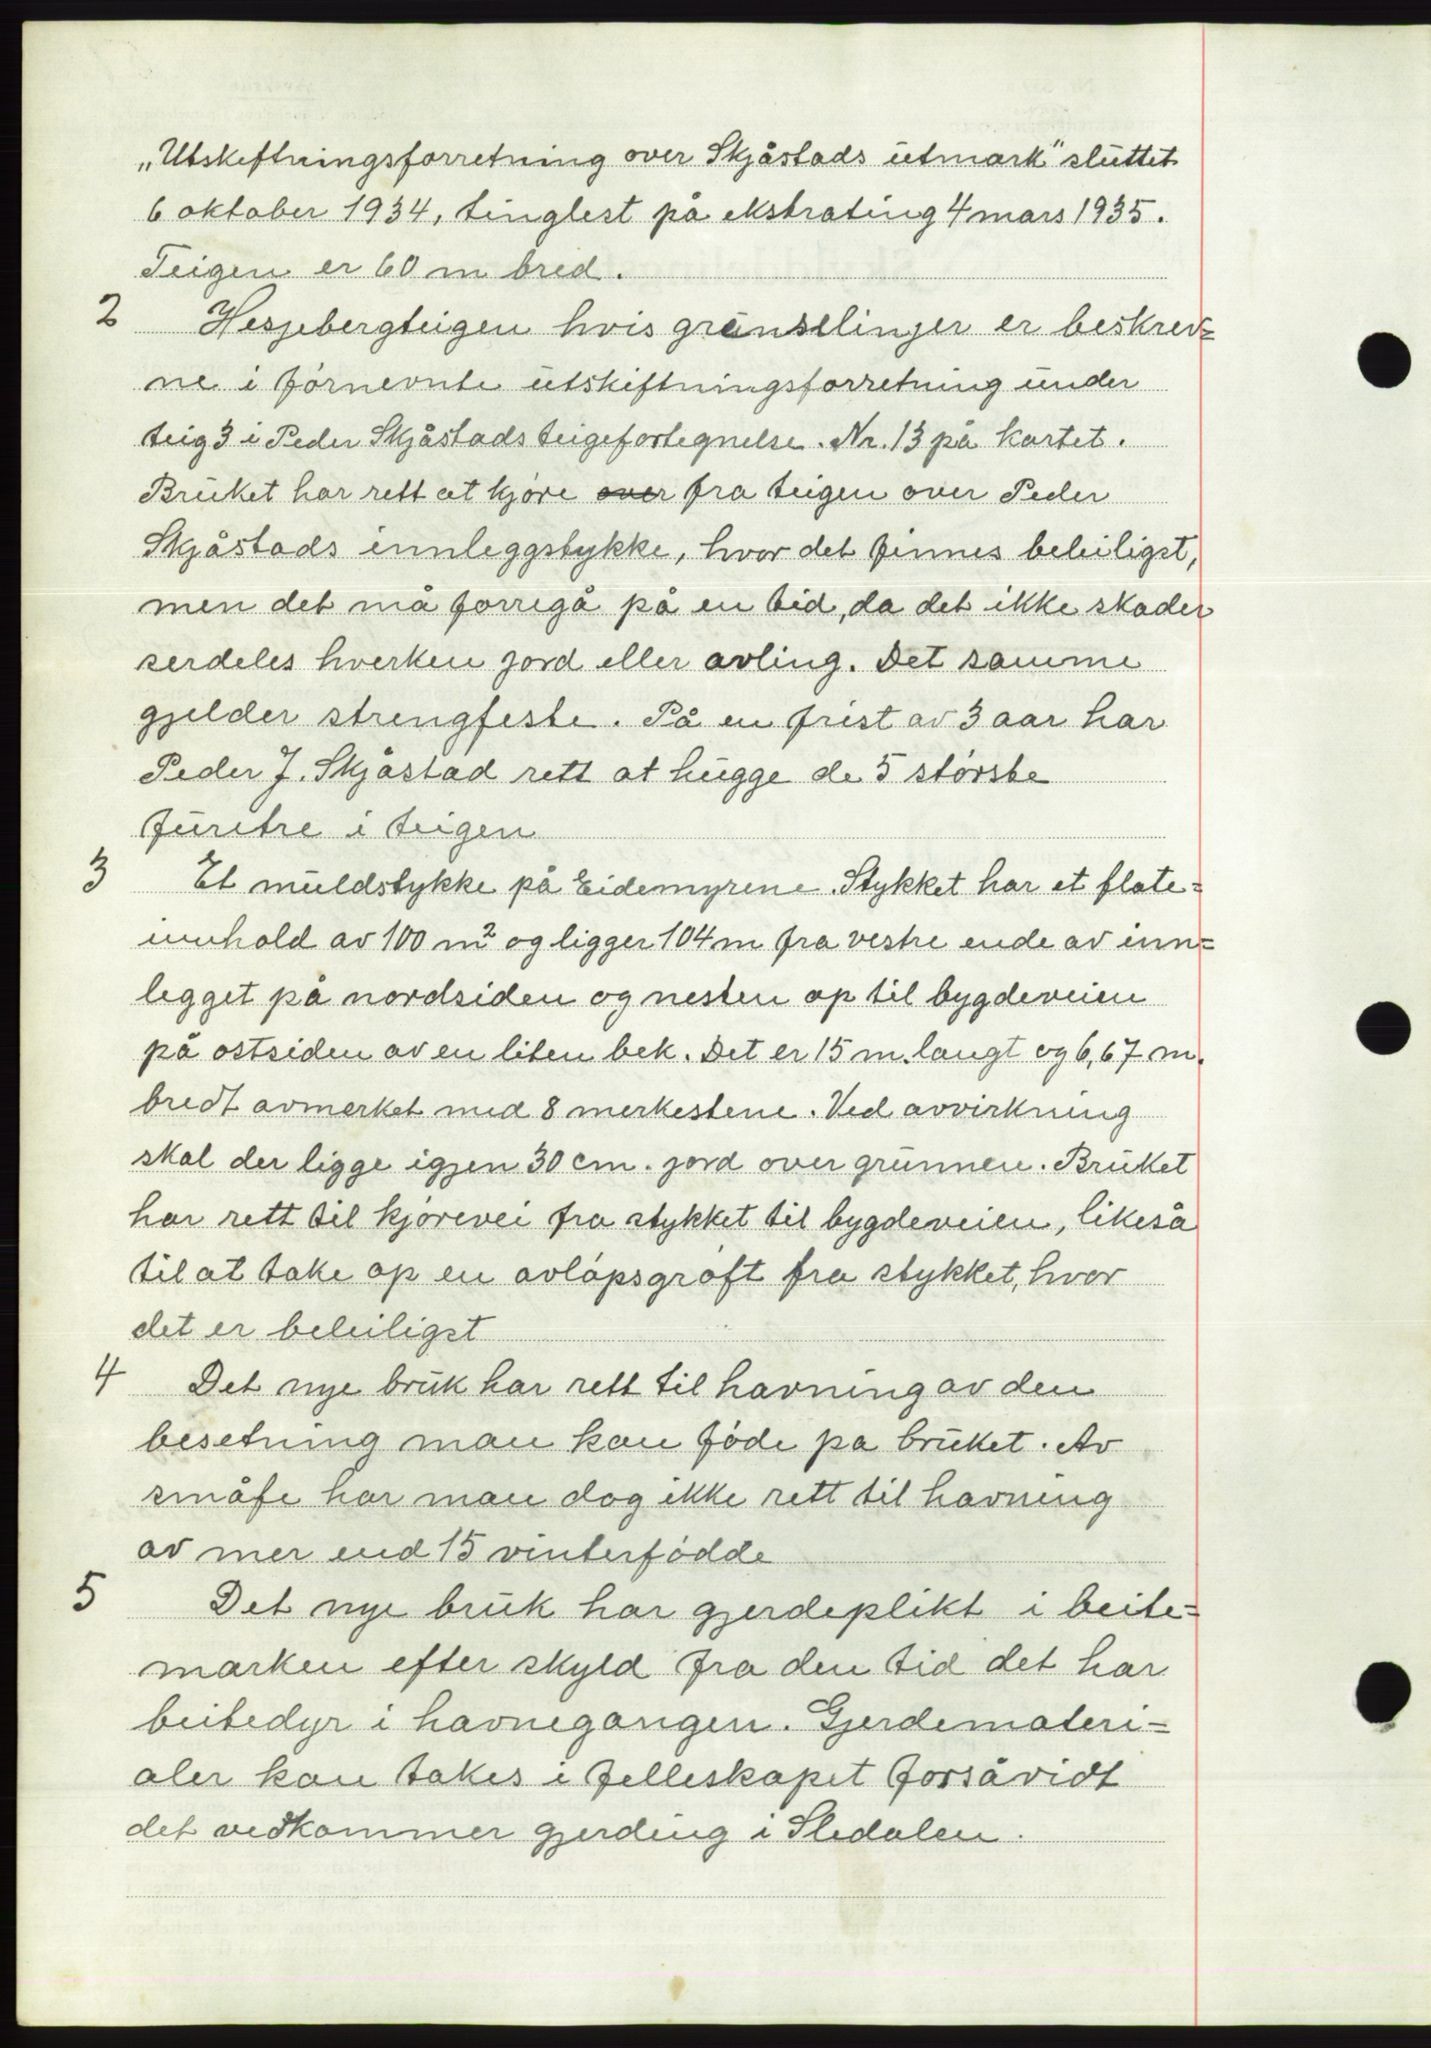 „Utskeftningsforretning over Skjåstads utmark" sluttet
6 oktober 1934, tinglest på ekstrating 4 mars 1935.
Teigen er 60 m bred.
2 Hesjebergteigen hvis grenselinjer er beskrev=
ne i førnevnte utskiftningsforretning under
teig 3 i Peder Skjåstads teigefortegnelse. Nr. 13 på kartet.
Bruket har rett at kjøre over fra teigen over Peder
Skjåstads innleggstykke, hvor det finnes beleiligst,
men det må forregå på en tid, da det ikke skader
serdeles hverken jord eller avling. Det samme
gjelder strengfeste. På en frist av 3 aar har
Peder J. Skjåstad rett at hugge de 5 største
furetre i teigen
3 Et muldstykke på Eidemyrene. Stykket har et flate=
innhold av 100 m² og ligger 104 m fra vestre ende av inn=
legget på nordsiden og nesten op til bygdeveien
på ostsiden av en liten bek. Det er 15 m. langt og 6,67 m.
bredt avmerket med 8 merkestene. Ved avvirkning
skal der ligge igjen 30 cm. jord over grunnen. Bruket
har rett til kjørevei fra stykket til bygdeveien, likeså
til at take op en avløpsgrøft fra stykket, hvor
det er beleiligst
4 Det nye bruk har rett til havning av den
besetning man kan føde pa bruket. Av
småfe har man dog ikke rett til havning
av mer end 15 vinterfødde
5 Det nye bruk har gjerdeplikt i beite=
marken efter skyld fra den tid det har
beitedyr i havnegangen. Gjerdemateri=
aler kan takes i felleskapet forsåvidt
det vedkommer gjerding i Sledalen.